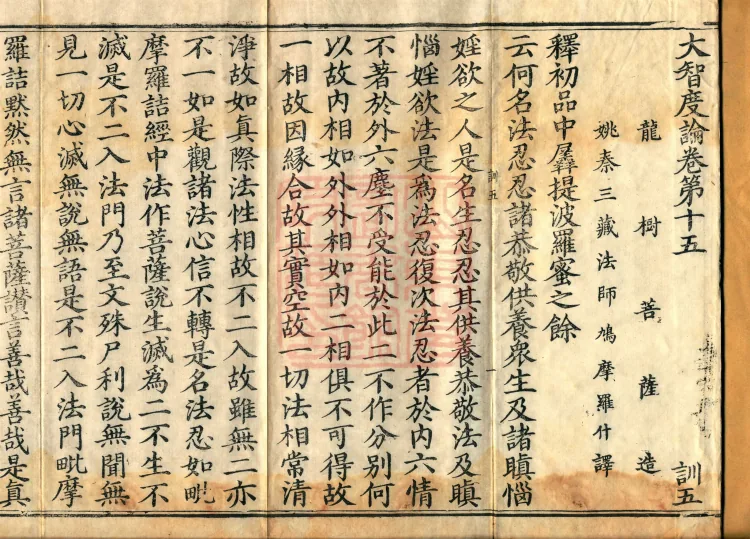 大智度論卷第十五 訓五
龍樹菩薩造
姚秦三藏法師鳩摩羅什譯
釋初品中羼提波羅蜜之餘
云何名法忍忍諸恭敬供養衆生及諸瞋惱
訓五
婬欲之人是名生忍忍其供養恭敬法及瞋
惱婬欲法是爲法忍復次法忍者於内六情
不著於外六塵不受能於此二不作分別何
以故内相如外外相如内二相俱不可得故
一相故因緣合故其實空故一切法相常清
淨故如眞際法性相故不二入故雖無二亦
不一如是觀諸法心信不轉是名法忍如毗
摩羅詰經中法作菩薩說生滅爲二不生不
滅是不二入法門乃至文殊尸利說無聞無
見一切心滅無說無語是不二入法門毗摩
羅詰默然無言諸菩薩讃言善哉善哉是眞